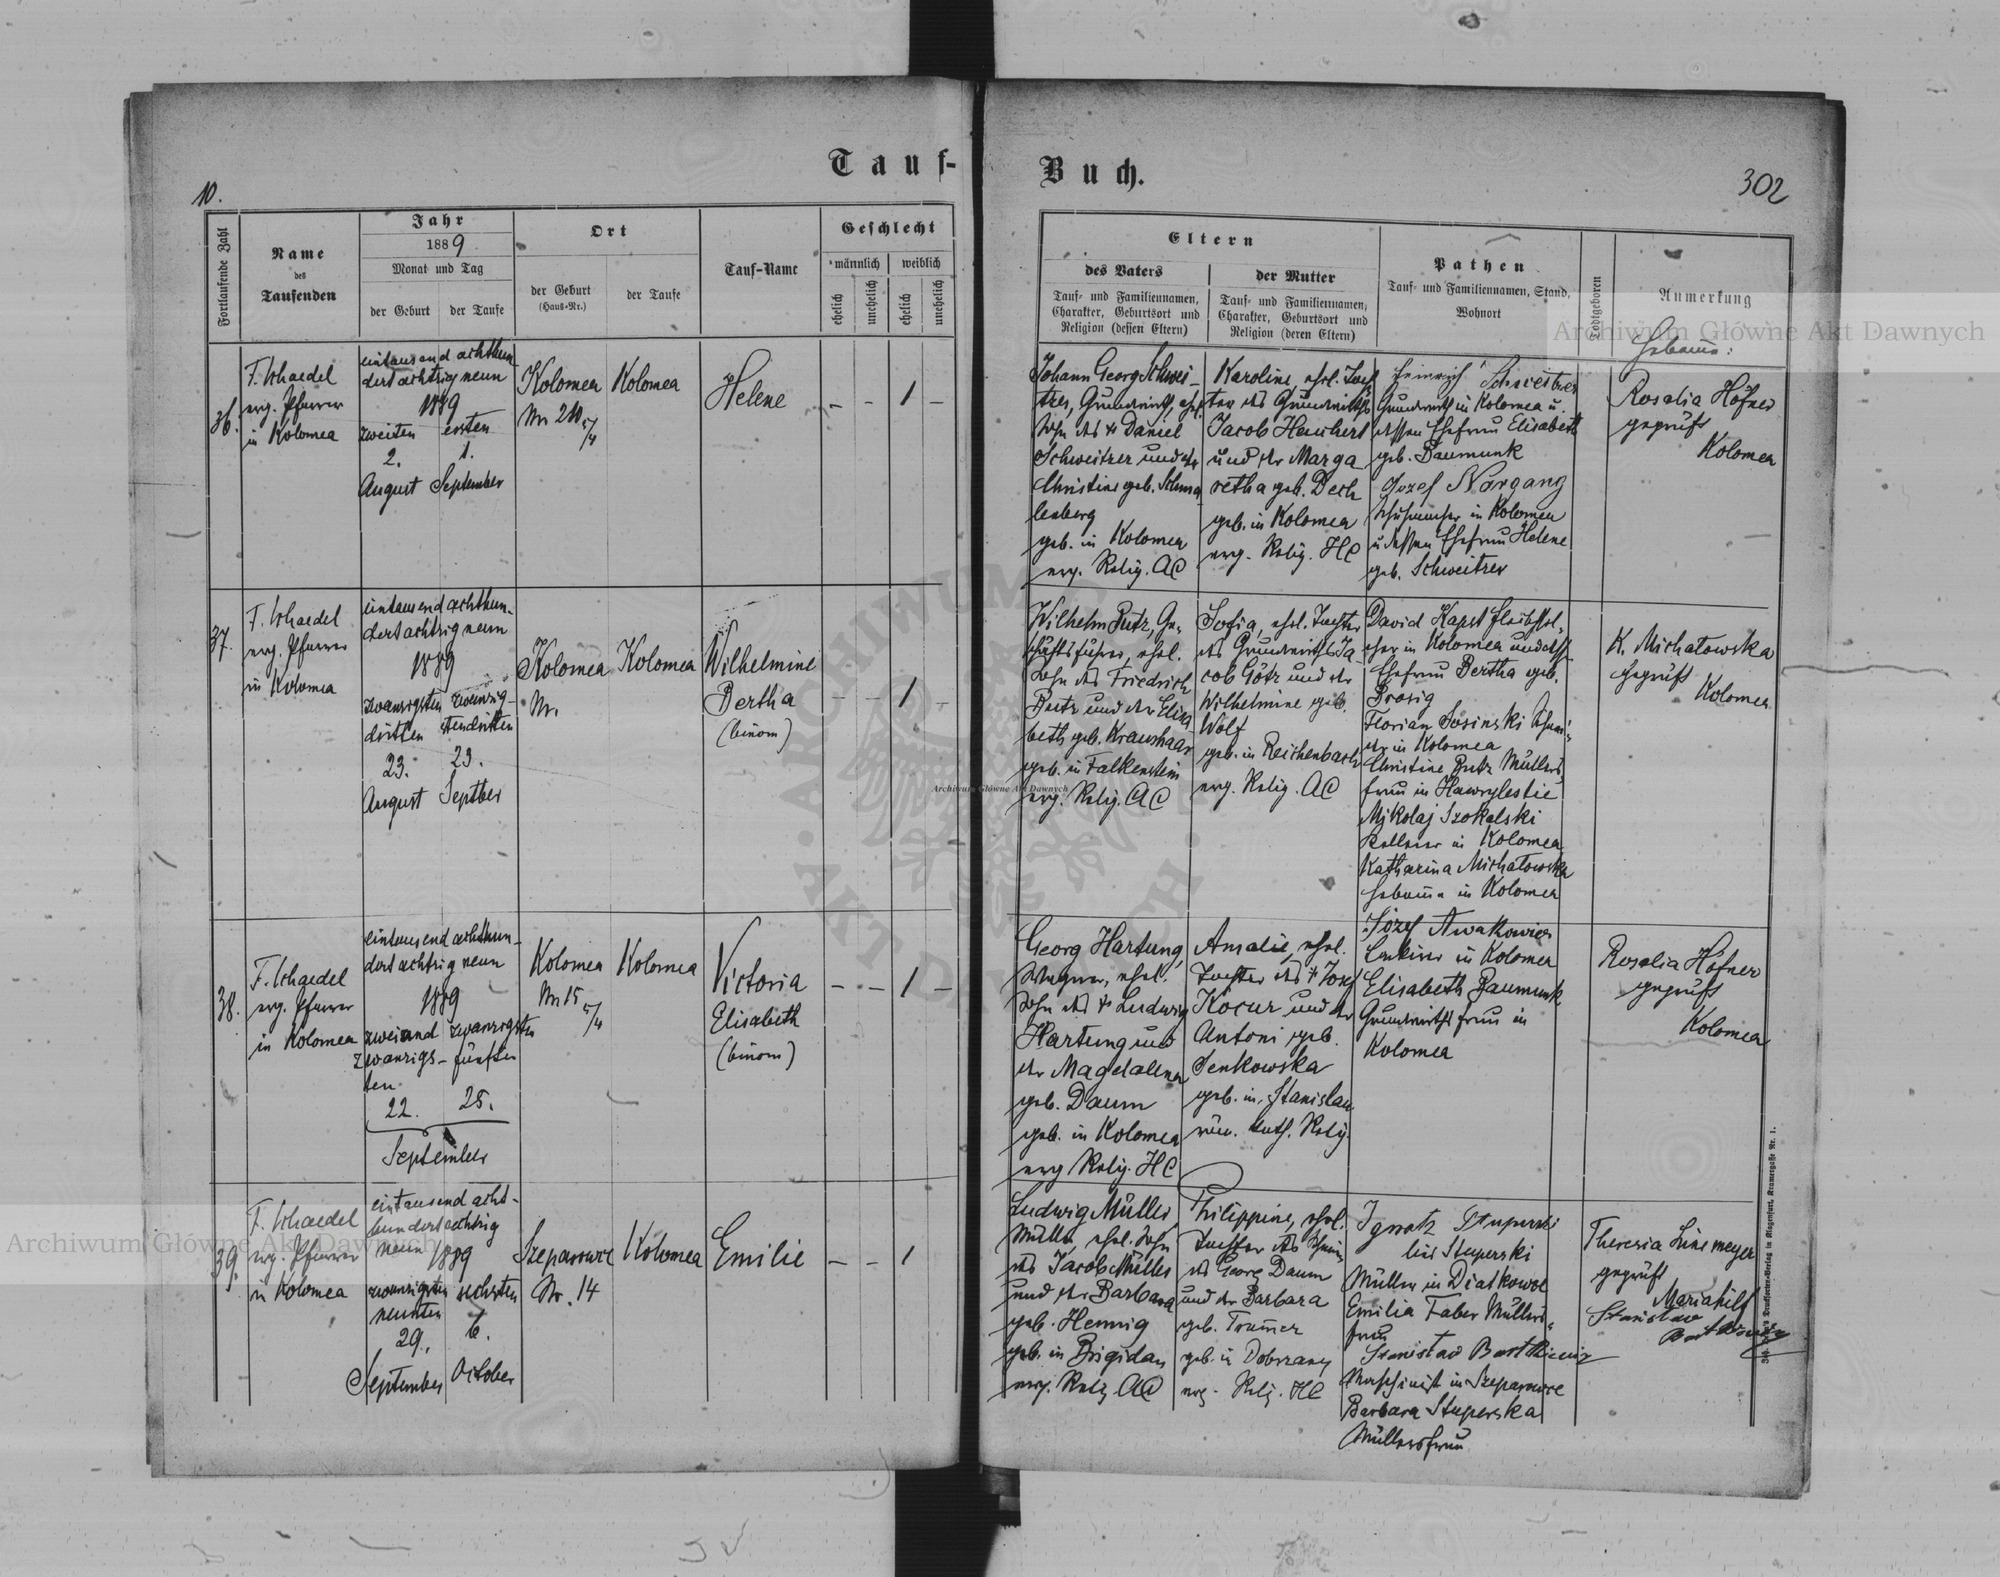 Tauf-
Buch.
10.
302
Fortlaufende Zahl
Name
des
Taufenden
Jahr
1889
Monat und Tag
der Geburt
der Taufe
Ort
der Geburt
(Haus-Nr.)
der Taufe
Tauf-Name
Geschlecht
männlich
weiblich
ehelich
unehelich
ehelich
unehelich
Eltern
des Vaters
Tauf- und Familiennamen,
Charakter, Geburtsort und
Religion (dessen Eltern)
der Mutter
Tauf- und Familiennamen,
Charakter, Geburtsort und
Religion (deren Eltern)
Pathen
Tauf- und Familiennamen, Stand,
Wohnort
Todtgeboren
Anmerkung
Hebame:
36.
F. Schaedel
evg. Pfarrer
in Kolomea
eintausend achthun-
dert achtzig neun
1889
zweiten
2.
August
ersten
1.
September
Kolomea
Nr 210
Kolomea
Helene
- - 1 -
Johann Georg Schwei-
tzer, Grundwirth, ehel.
Sohn des + Daniel
Schweitzer und der
Christine geb.
geb. in Kolomea
evg. Relig. AC
Karoline, ehel. Toch
ter des Grundwirths
Jacob
und der Marga
retha geb. Dech
geb. in Kolomea
evg. Relig. HC
Heinrich Schweitzer
Grundwirth in Kolomea u.
dessen Ehefrau Elisabeth
geb. Baumunk
Jozef Nargang
Schuhmacher in Kolomea
u dessen Ehefrau Helene
geb. Schweitzer
Rosalia Höfner
geprüft
Kolomea
37.
F. Schaedel
evg. Pfarrer
in Kolomea
eintausend achthun-
dert achtzig neun
1889
zwanzigsten
dritten
23.
August
zwanzig-
sten dritten
23.
Septber
Kolomea
Nr.
Kolomea
Wilhelmine
Bertha
(binom)
- - 1 -
Wilhelm Butz, Ge-
schäftsführer, ehel.
Sohn des Friedrich
Butz und der Elisa
beth geb. Kraushaar
geb. in Falkenstein
evg. Relig. AC
Sofia, ehel. Tochter
des Grundwirths Ja
cob Götz und der
Wilhelmine geb.
Wolf
geb. in Reichenbach
evg. Relig. AC
David Kapst
in Kolomea und dess
Ehefrau Bertha geb.
Brosig
Florian Sosinski
in Kolomea
Christine Butz Müllers
frau in
Mikolaj Szokalski
Kellner in Kolomea
Katharina Michałowska
Hebame in Kolomea
K. Michałowska
geprüft
Kolomea
38.
F. Schaedel
evg. Pfarrer
in Kolomea
eintausend achthun-
dert achtzig neun
1889
zweiund
zwanzigs-
ten
22.
zwanzigsten
fünften
25.
September
Kolomea
Nr 15
Kolomea
Victoria
Elisabeth
(binom)
- - 1 -
Georg Hartung,
Wagner, ehel.
Sohn des + Ludwig
Hartung und
der Magdalena
geb. Daum
geb. in Kolomea
evg Relig. HC
Amalie, ehel.
Tochter des + Josef
Kocur und der
Antoni geb.
Senkowska
geb. in Stanislau
röm. kath. Relig.
Józef Awakowicz
in Kolomea
Elisabeth Baumunk
Grundwirths frau in
Kolomea
Rosalia Höfner
geprüft
Kolomea
39.
F. Schaedel
evg. Pfarrer
in Kolomea
eintausend acht-
hundert achtzig
neun 1889
zwanzigsten
neunten
29.
September
sechsten
6.
October
Szeparowce
Nr. 14
Kolomea
Emilie
- - 1
Ludwig Müller
Müller ehel. Sohn
des Jacob Müller
und der Barbara
geb. Hennig
geb. in Brigidau
evg. Relig AC
Philippine, ehel.
Tochter des
Georg Daum
und der Barbara
geb.
geb. in Dobrzany
evg. Relig. HC
Ignatz Stuperski
Müller in Diatkowce
Emilia Faber Müllers-
frau
Stanisław Bartkiewicz
Maschinist in Szeparowce
Barbara Stuperska
Müllersfrau
Theresia Linemeyer
geprüft
Mariahilf
Stanisław
Bartkiewicz
Archiwum Główne Akt Dawnych
Archiwum Główne Akt Dawnych
Archiwum Główne Akt Dawnych